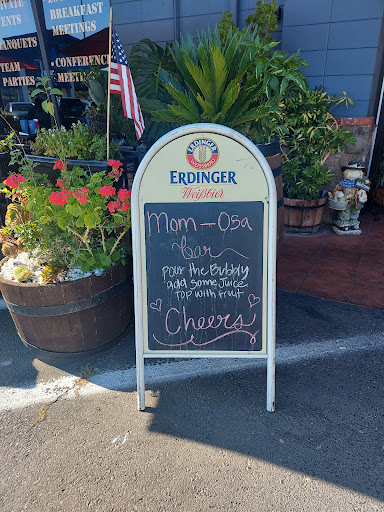 EVENTS
BREAKFAST
MEETINGS
BANQUETS
TEAM
PARTIES
• CONFERENCE
MEETINGS
ERDINGER
Weißbier
Mom-Osa
Bar
pour the Bubbly
add some Juice
Top with fruit
Cheers